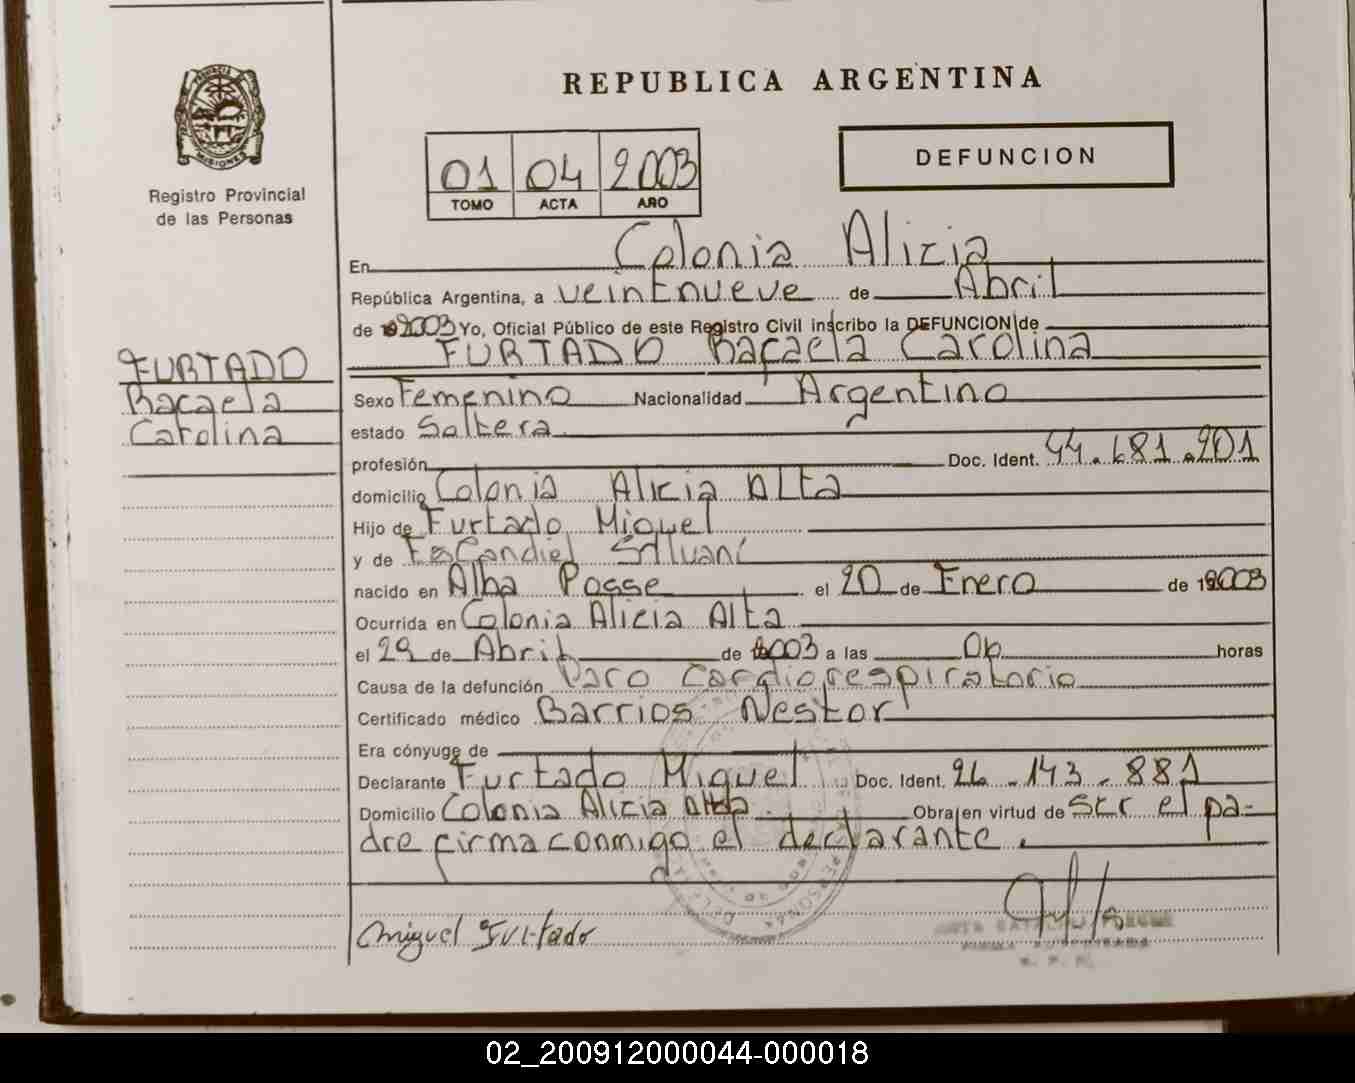 REPUBLICA ARGENTINA
MISIONES
Registro Provincial
de las Personas
01 04 2003
TOMO ACTA AÑO
DEFUNCION
En Colonia Alicia
República Argentina, a veintnueve de Abril
de 2003 Yo, Oficial Público de este Registro Civil inscribo la DEFUNCION de
FURTADO Rafaela Carolina
FURTADO
Rafaela
Carolina
Sexo Femenino Nacionalidad Argentino
estado Soltera
profesión Doc. Ident. 44.681.201
domicilio Colonia Alicia Alta
Hijo de Furtado Miguel
y de Escandiel Silvani
nacido en Alba Posse el 20 de Enero de 2003
Ocurrida en Colonia Alicia Alta
el 29 de Abril de 2003 a las 06 horas
Causa de la defunción Paro Cardiorespiratorio
Certificado médico Barrios Nestor
Era cónyuge de
Declarante Furtado Miguel Doc. Ident. 26.143.881
Domicilio Colonia Alicia Alta Obra en virtud de ser el pa-
dre firma conmigo el declarante.
Miguel Furtado
02_200912000044-000018